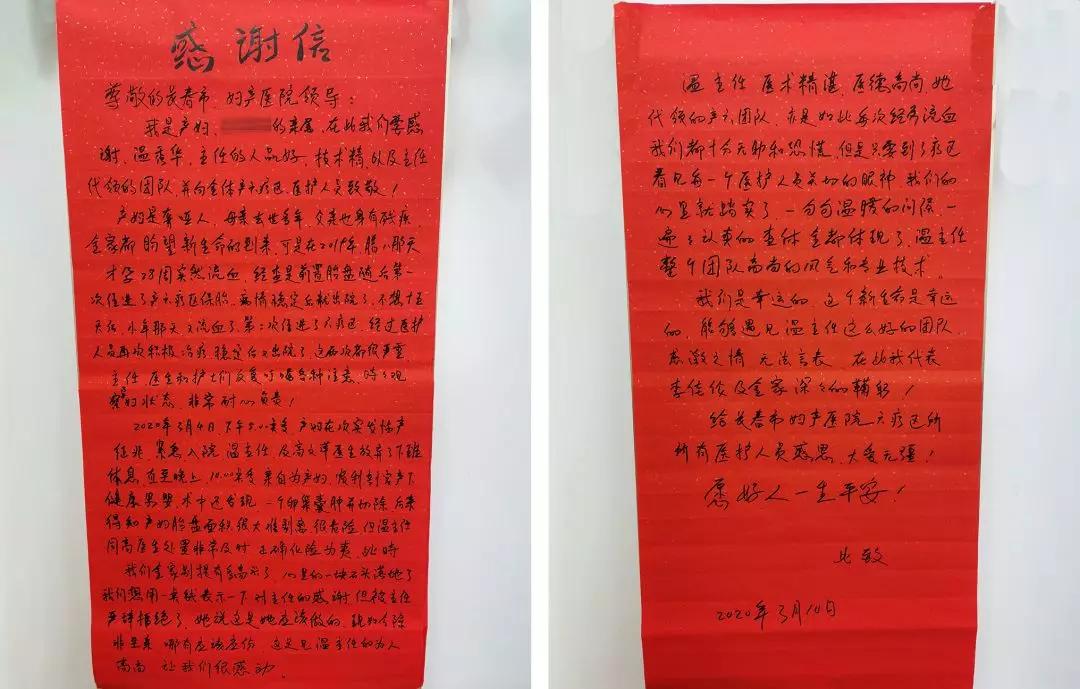 感谢信
尊敬的长春市妇产医院领导：
我是产妇 的亲属，在此我们要感
谢，温秀华，主任的人品好，技术精，以及主任
代领的团队并向全体产六疗区医护人员致敬！
产妇是聋哑人，母亲去世多年，父亲也身有残疾
全家都盼望新生命的到来，可是在2019年腊八那天
才孕28周突然流血，经查是前置胎盘随后第一
次住进了产六疗区保胎，病情稳定后就出院了，不想十五
天后，小年那天又流血了，第二次住进了六疗区，经过医护
人员再次积极治疗，稳定后又出院了，这两次都很严重
主任，医生和护士们反复叮嘱各种注意，时时观
察的状态，非常耐心负责！
2020年3月4日下午5:00来钟产妇在次突发性产
征兆，紧急入院温主任，及高文革医生放弃了下班
休息，直至晚上，10:00来钟亲自为产妇，顺利剖宫产下
健康男婴，术中还发现，一个卵巢囊肿一切除后来
得知产妇胎盘面积很大难剥离，很危险，但温主任
同高医生处置非常及时正确化险为夷，此时
我们全家别提有多高兴了，心里的一块石头落地了
我们想用一点钱表示一下对主任的感谢但被主任
严辞拒绝了，她说这是她应该做的，
非
哪有应该应份，这足见温主任的为人
高尚让我们很感动。
温主任医术精湛，医德高尚，她
代领的产六团队，亦是如此每次经历流血
我们都十分无助和恐慌，但是只要到了疗区
看见每一个医护人员关切的眼神我们的
心里就踏实了，一句句温暖的问候，一
遍遍认真的查体全都体现了，温主任
整个团队高尚的风气和专业技术。
我们是幸运的，这个新生命是幸运
的，能够遇见温主任这么好的团队，
感激之情无法言表，在此我代表
李佳 及全家深深的鞠躬！
给长春市妇产医院六疗区所
所有医护人员感恩，大爱无疆！
愿好人一生平安！
此致
2020年3月10日